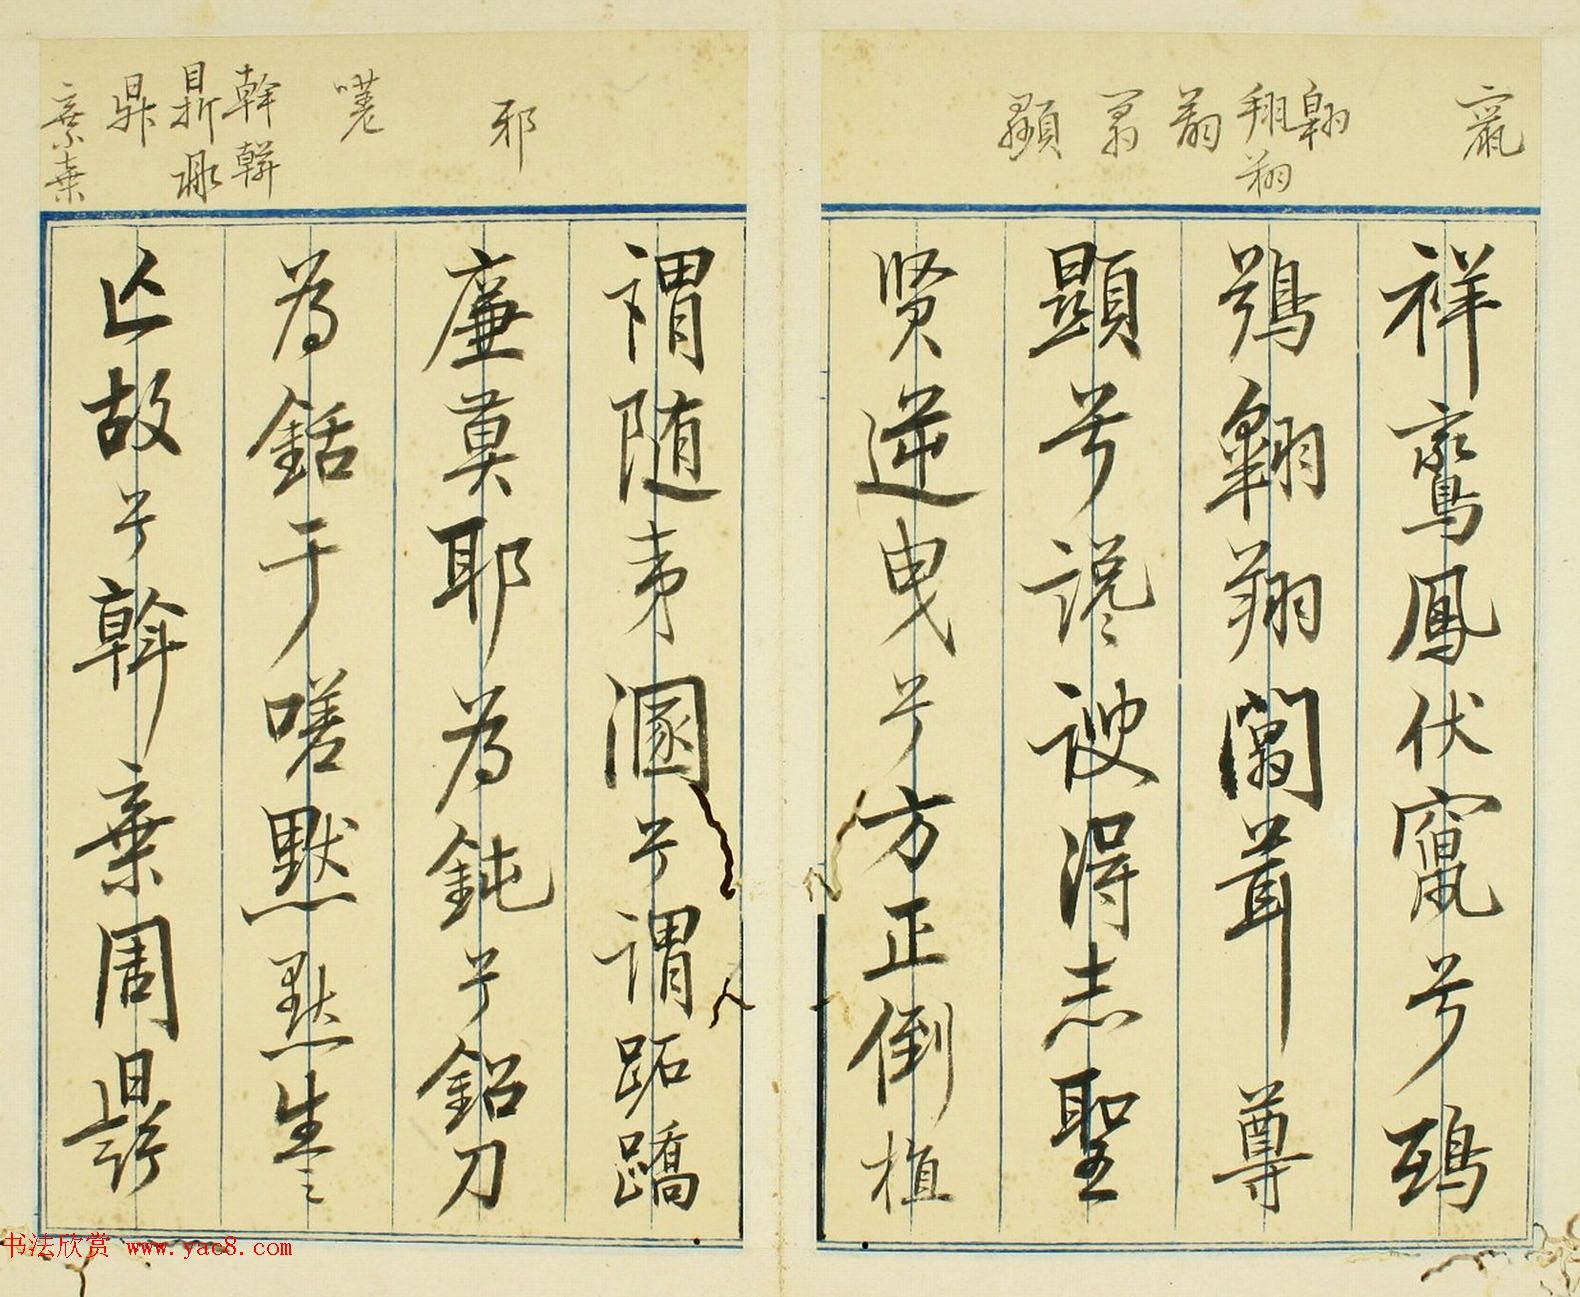 竄
翱
翔
翔
顯
祥鸞鳳伏竄兮鴟
鴞翱翔闒茸尊
顯兮讒諛得志聖
賢逆曳兮方正倒植
邪
嗟
斡
鼎
棄棄
謂随夷溷兮謂跖蹻
廉莫耶為鈍兮鉛刀
為銛于嗟默默生之
亡故兮斡棄周鼎
书法欣赏 www.yac8.com